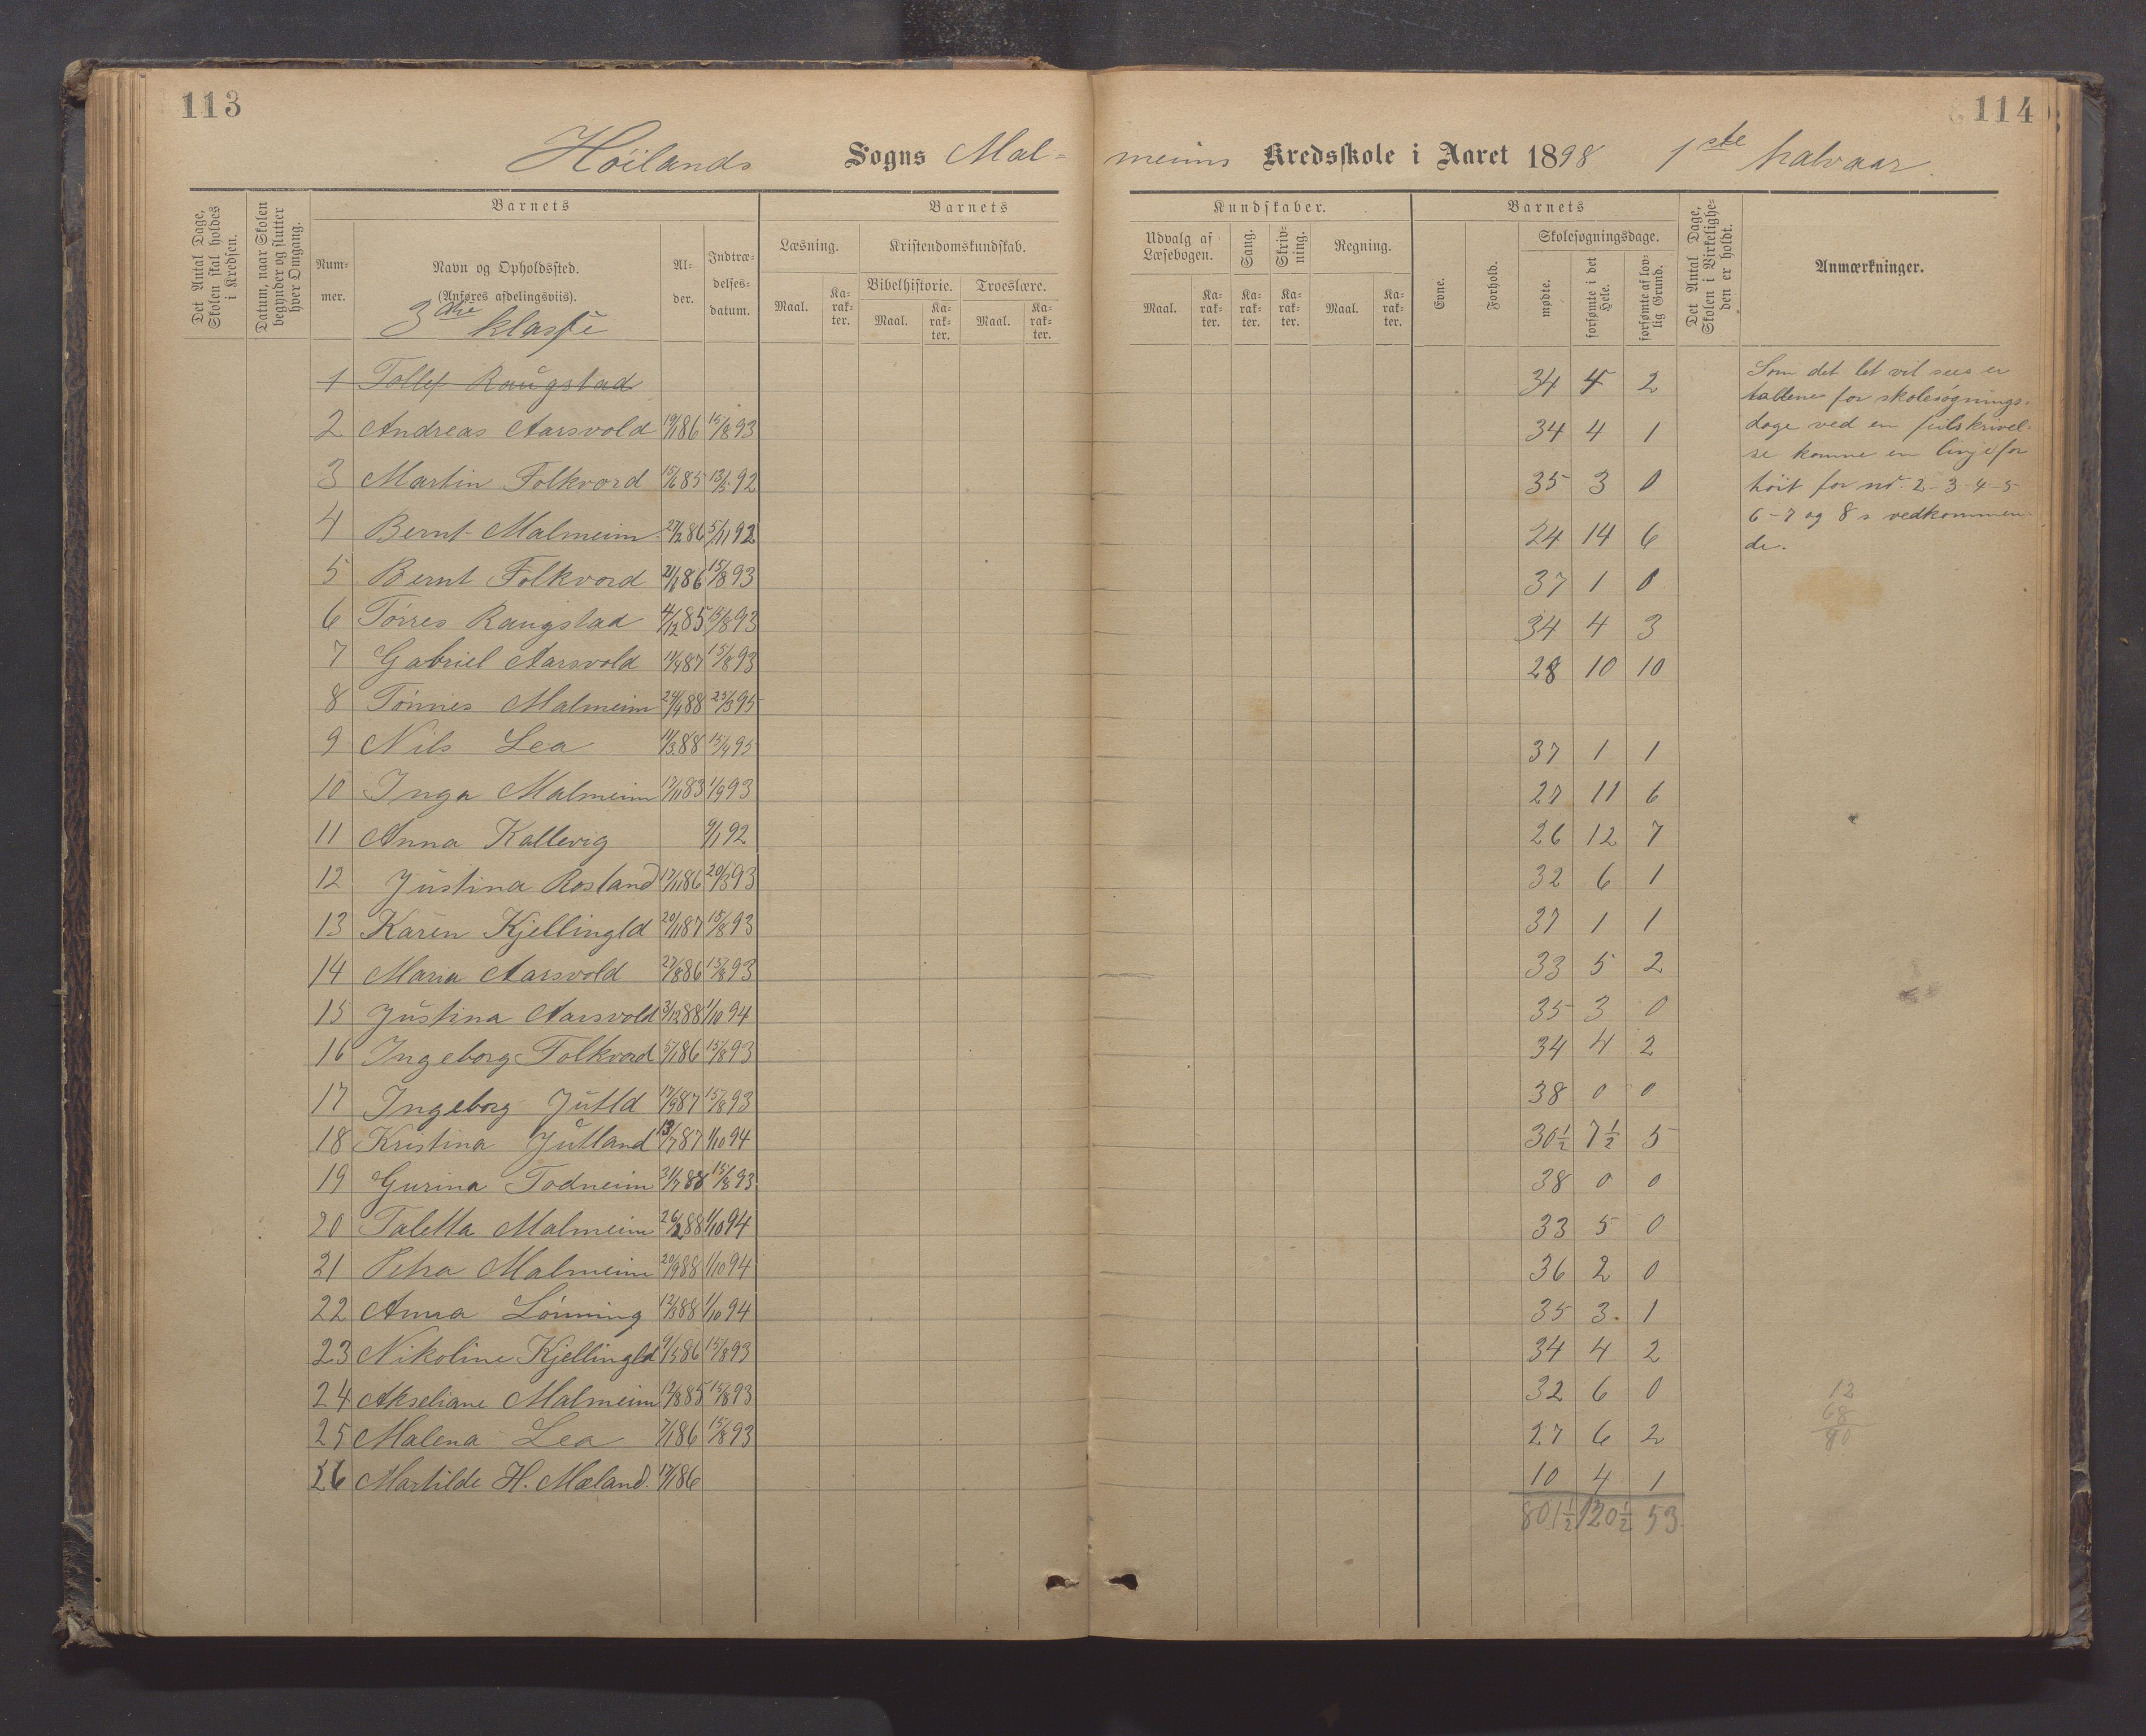 113
114
Höilands Sogns Mal-
meims Kredsskole i Aaret 1898 1ste halvaar.
Det Antal Dage, Skolen skal holdes i Kredsen.
Datum, naar Skolen begynder og slutter hver Omgang.
Barnets
Nummer.
Navn og Opholdssted.
(Anføres afdelingsviis).
3die klasse
Alder.
Indtrædelsesdatum.
Barnets
Læsning.
Maal.
Karakter.
Kristendomskundskab.
Bibelhistorie.
Maal.
Karakter.
Troeslære.
Maal.
Karakter.
Kundskaber.
Udvalg af Læsebogen.
Maal.
Karakter.
Sang.
Karakter.
Skrivning.
Karakter.
Regning.
Maal.
Karakter.
Barnets
Evne.
Forhold.
Skolesøgningsdage.
mødte.
forsømte i det Hele.
forsømte af lovlig Grund.
Det Antal Dage, Skolen i Virkeligheden er holdt.
Anmærkninger.
1 Tollef Raugstad 34 4 2
2 Andreas Aarsvold 19/1 86 15/8 93 34 4 1
3 Martin Folkvord 15/6 85 13/5 92 35 3 0
4 Bernt Malmeim 27/2 86 5/11 92 24 14 6
5 Bernt Folkvord 21/1 86 15/8 93 37 1 0
6 Törres Raugstad 4/12 85 15/8 93 34 4 3
7 Gabriel Aarsvold 11/4 87 15/8 93 28 10 10
8 Tönnes Malmeim 24/4 88 25/3 95
9 Nils Lea 11/3 88 15/4 95 37 1 1
10 Inga Malmeim 17/11 83 1/9 93 27 11 6
11 Anna Kallevig 9/1 92 26 12 7
12 Justina Rosland 17/11 86 20/3 93 32 6 1
13 Karen Kjellingld 20/11 87 15/8 93 37 1 1
14 Maria Aarsvold 27/8 86 15/8 93 33 5 2
15 Justina Aarsvold 3/12 88 1/10 94 35 3 0
16 Ingeborg Folkvord 5/1 86 15/8 93 34 4 2
17 Ingeborg Jutld 17/9 87 15/8 93 38 0 0
18 Kristina Jutland 13/7 87 1/10 94 30½ 7½ 5
19 Gurina Todneim 31/7 88 15/8 93 38 0 0
20 Taletta Malmeim 26/2 88 1/10 94 33 5 0
21 Petra Malmeim 20/9 88 1/10 94 36 2 0
22 Anna Lönning 12/3 88 1/10 94 35 3. 1
23 Nikoline Kjellingld 9/5 86 15/8 93 34 4 2
24 Akseliane Malmeim 12/8 85 15/8 93 32 6 0
25 Malena Lea 7/1 86 15/8 93 27 6 2
26 Martilde H. Mæland. 17/1 86 10 4 1
801½ 120½ 53.
Som det let vil sees er
tallene for skolesøgnings-
dage ved en feilskrivel-
se komne en linje for
höit for nr. 2-3-4-5
6-7 og 8s vedkommen-
de.
12
68
80